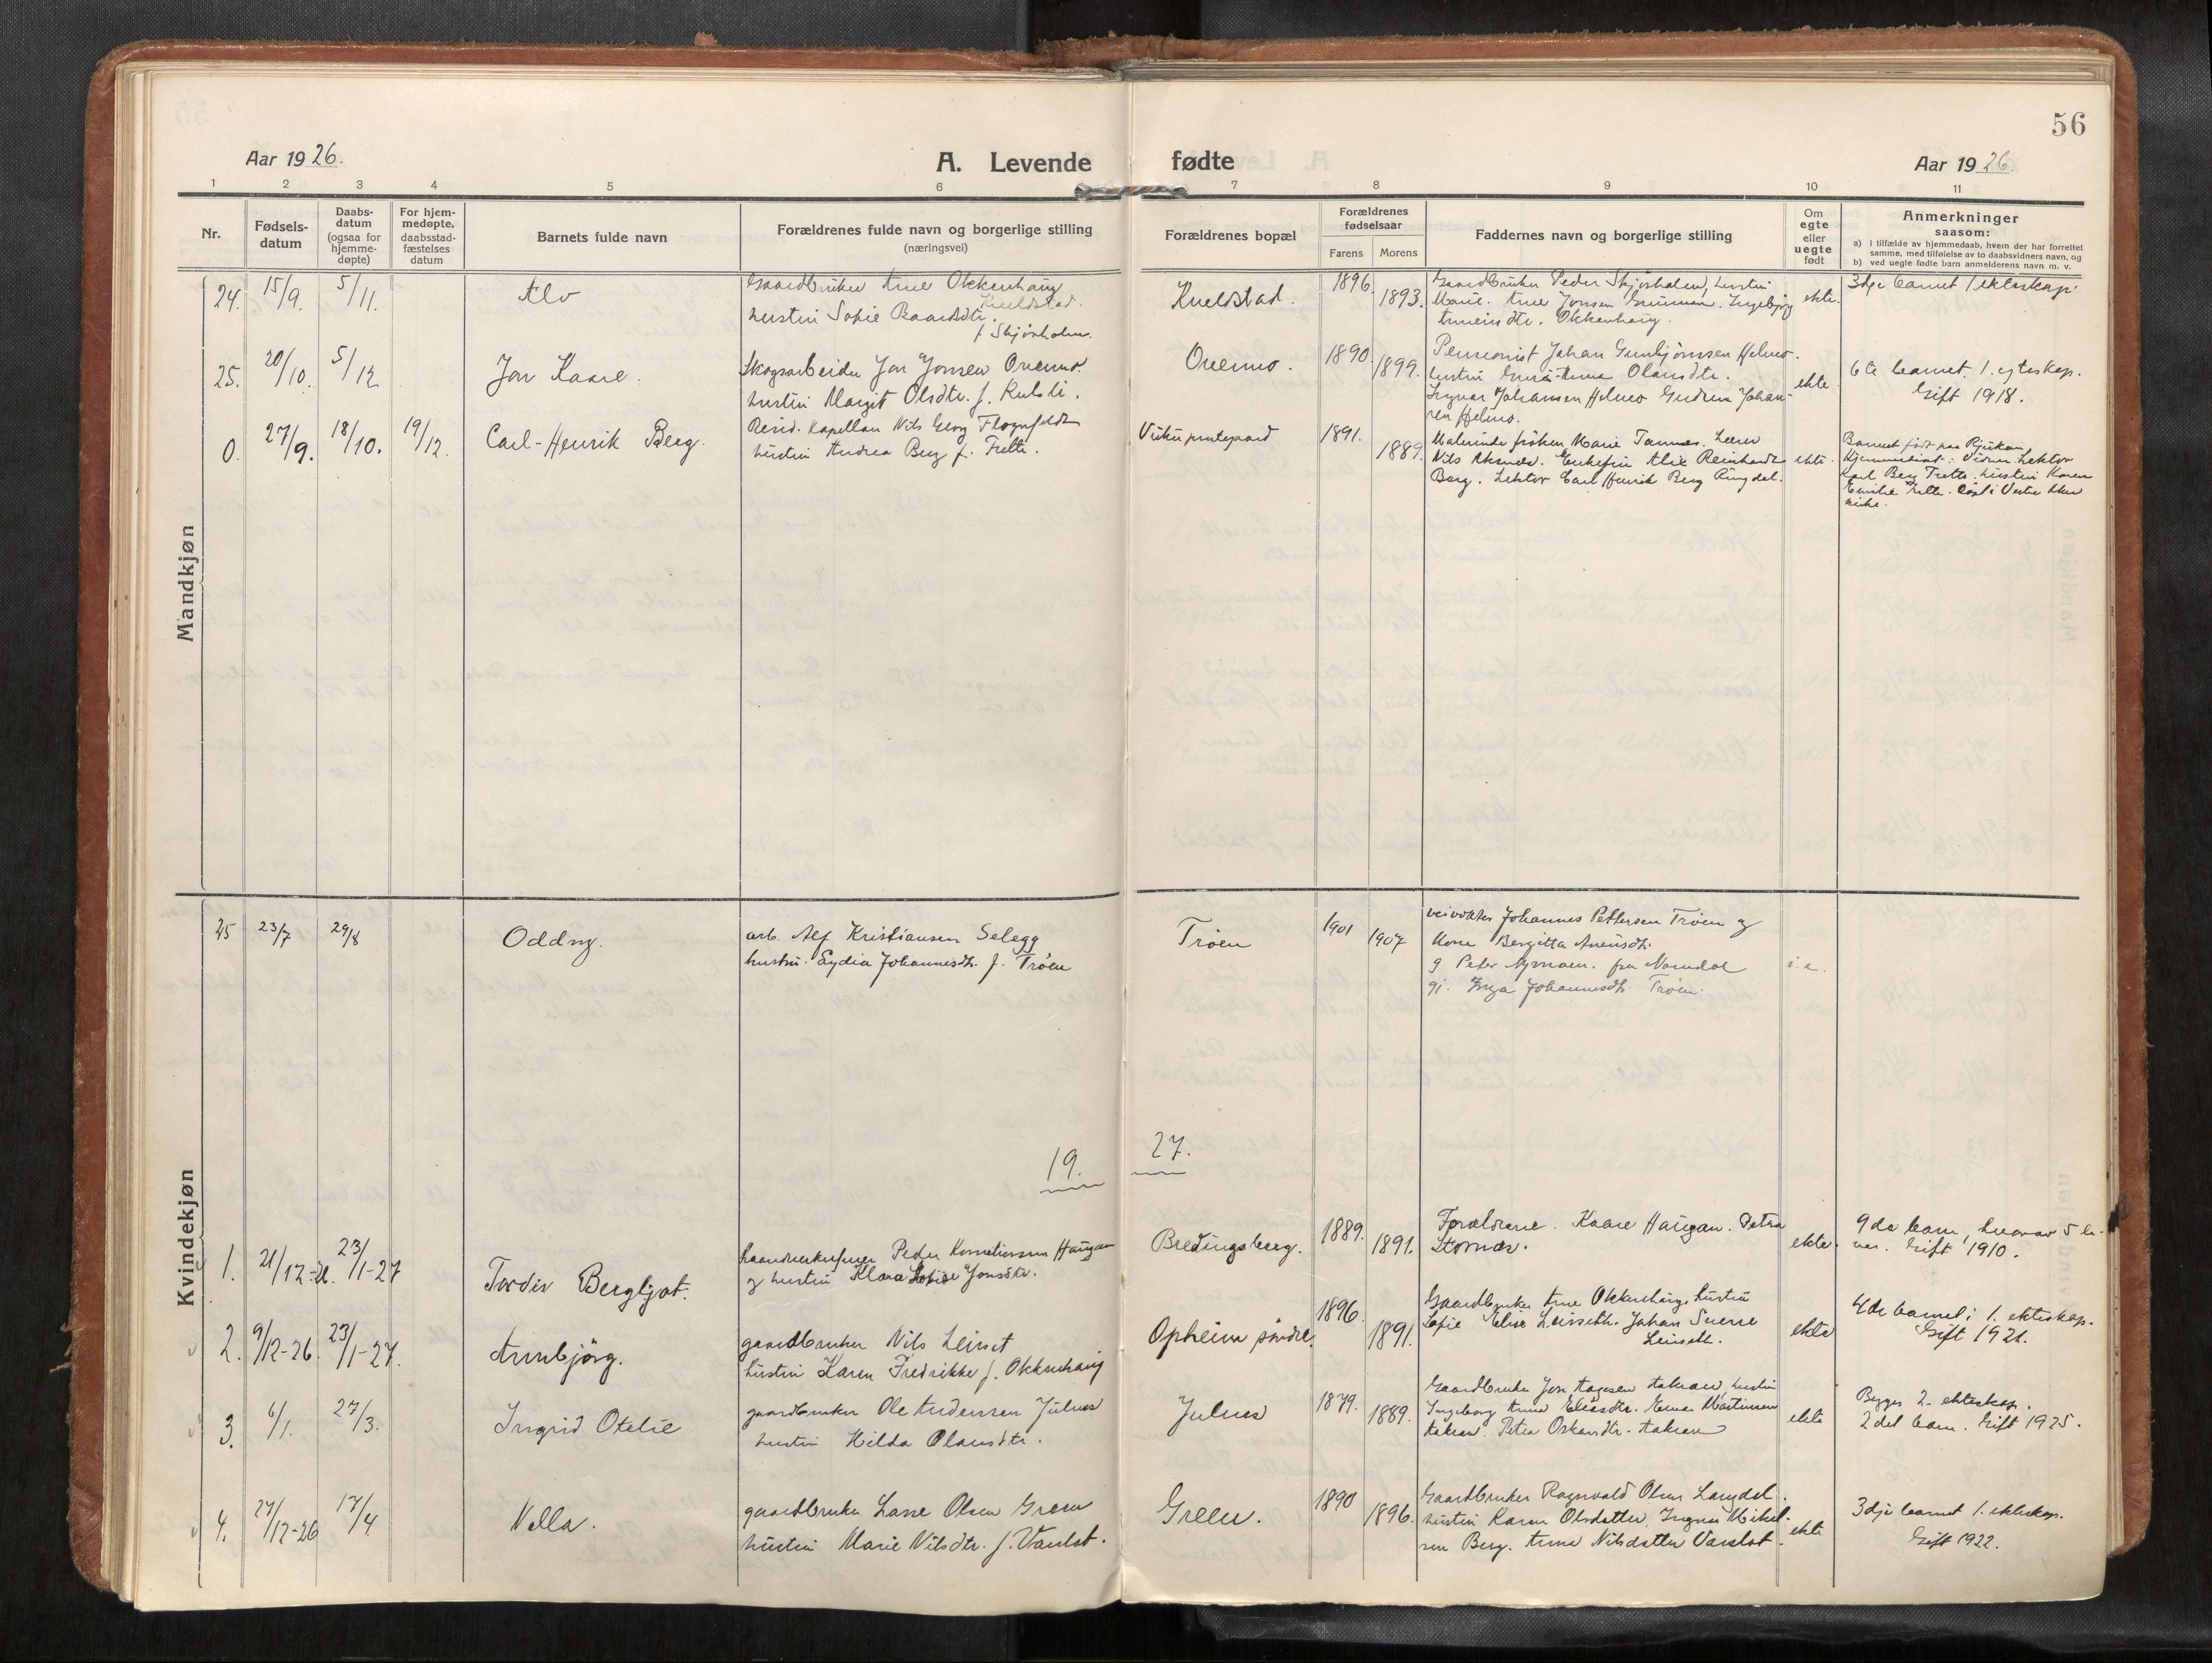 56
Aar 1926.
A. Levende fødte
Aar 1926.
1 2 3 4 5 6 7 8 9 10 11
Nr.
Fødsels-
datum
Daabs-
datum
(ogsaa for
hjemme-
døpte)
For hjem-
medøpte,
daabsstad-
fæstelses
datum
Barnets fulde navn
Forældrenes fulde navn og borgerlige stilling
(næringsvei)
Forældrenes bopæl
Forældrenes
fødselsaar
Farens Morens
Faddernes navn og borgerlige stilling
Om
egte
eller
uegte
født
Anmerkninger
saasom:
a) i tilfælde av hjemmedaab, hvem der har forrettet
samme, med tilføielse av to daabsvidners navn, og
b) ved uegte fødte barn anmelderens navn m. v.
Mandkjøn
24. 15/9. 5/11. Alv
Gaardbruker Arne Okkenhaug
Kveldstad.
hustru Sofie Baardsdtr.
f. Skjørholm.
Kveldstad. 1896. 1893.
Gaardbruker Peder Skjørholm, hustru
Marie. Arne Jonsen Grunnan. Ingebjørg
Arneinsdtr. Okkenhaug.
ekte.
3dje barnet 1 ekteskap.
25. 20/10. 5/12 Jon Kaare.
Skogsarbeider Jon Jonsen Overmo.
hustru Margit Olsdtr. f. Kulsli.
Overmo. 1890. 1899.
Pensionist Johan Gunbjørnsen Helmo.
hustru Anna Olausdtr.
Ingvar Johansen Helmo Gudrun Johan-
sen Helmo.
ekte
6te barnet. 1. egteskap.
Gift 1918.
0. 27/9. 18/10. 19/12. Carl-Henrik Berg.
Resid. kapellan Nils Georg Flognfeldt
hustru Andrea Berg f. Trette.
Vuku prestegaard 1891. 1889.
Malerinde frøken Marie Tannæs. Lærer
Nils Aksnes. Enkefru Alix Reinhardt
Berg. Lektor Carl Henrik Berg Ringdal.
ekte.
Barnet født paa Rjukan
Hjemmedøpt. Vidner: Lektor
Karl Berg Trette. hustru Karen
Emilie Trette. Døpt i Vestre Aker
kirke.
Kvindekjøn
25 23/7 29/8 Oddny.
arb. Alf Kristiansen Selegg
hustru. Lydia Johannesdtr. f. Trøen
Trøen 1901 1907
veivokter Johannes Pettersen Trøen og
Kone Bergitta Arneusdtr.
g Peter Nymoen. fra Namdal
gi. Inga Johannesdtr. Trøen.
i. e.
19. 27.
1. 21/12-26. 23/1-27 Tordis Bergljot.
haandverkersvenn Peder Korneliussen Haugan
og hustru Klara Sofie Jonsdtr.
Bredingsberg. 1889. 1891.
Forældrene. Kaare Haugan. Petra
Stornæs.
ekte.
9de barn, hvorav 5 le-
ver. Gift 1910.
2. 9/12-26. 23/1-27. Annbjørg.
gaardbruker Nils Leinset
hustru Karen Fredrikke f. Okkenhaug
Opheim søndre. 1896. 1891.
Gaardbruker Arne Okkenhaug, hustru
Sofie Elise Leinseth. Johan Sverre
Leinseth.
ekte
4de barnet i 1. ekteskap.
Gift 1921.
3. 6/1. 27/3. Ingrid Otelie
gaardbruker Ole Andersen Julnes
hustru Hilda Olausdtr.
Julnes 1879. 1889.
Gaardbruker Jon Aagesen Aakran, hustru
Ingeborg Anna Eliasdtr. Einar Martinsen
Aakran. Petra Oskarsdtr. Aakran
ekte
Begges 2. ekteskap.
2det barn. Gift 1925.
4. 27/12-26 17/4 Nella.
gaardbruker Lasse Olsen Green
hustru Marie Nilsdtr. f. Vanslot.
Green. 1890 1896.
Gaardbruker Ragnvald Olsen Langdal.
hustru Karen Olsdatter, Ingvar Mikal-
sen Berg. Anna Nilsdatter Vanslot.
ekte
3dje barnet 1. ekteskap.
Gift 1922.